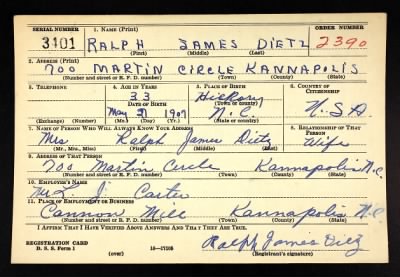 SERIAL NUMBER 1. NAME (Print) ORDER NUMBER
3401 RALPH JAMES DIETZ 2390
(First) (Middle) (Last)
2. ADDRESS (Print)
700 MARTIN CIRCLE KANNAPOLIS
(Number and street or R. F. D. number) (Town) (County) (State)
3. TELEPHONE 4. AGE IN YEARS 5. PLACE OF BIRTH 6. COUNTRY OF CITIZENSHIP
33 Hickory
DATE OF BIRTH (Town or county)
May 1907 N.C. U.S.A
(Exchange) (Number) (Mo.) (Day) (Yr.) (State or country)
7. NAME OF PERSON WHO WILL ALWAYS KNOW YOUR ADDRESS 8. RELATIONSHIP OF THAT PERSON
Mrs Ralph James Dietz Wife
(Mr., Mrs., Miss) (First) (Middle) (Last)
9. ADDRESS OF THAT PERSON
700 Martin Circle Kannapolis N.C.
(Number and street or R. F. D. number) (Town) (County) (State)
10. EMPLOYER'S NAME
Mr L. J. Carter
11. PLACE OF EMPLOYMENT OR BUSINESS
Cannon Mill Kannapolis N.C.
(Number and street or R. F. D. number) (Town) (County) (State)
I AFFIRM THAT I HAVE VERIFIED ABOVE ANSWERS AND THAT THEY ARE TRUE.
Ralph James Dietz
REGISTRATION CARD
D. S. S. Form 1 (over) 16—17105 (Registrant's signature)